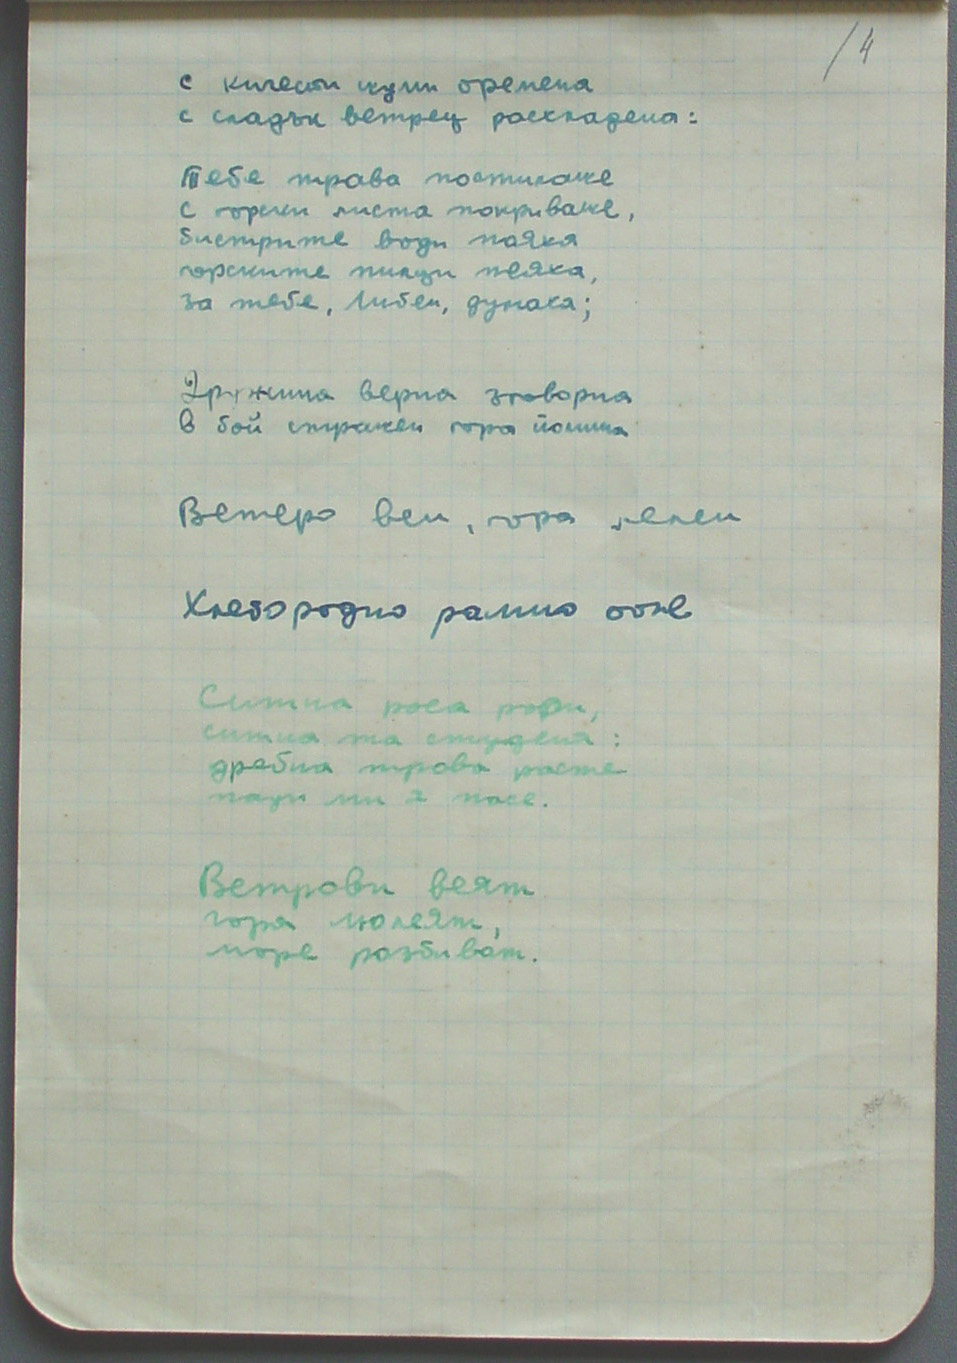 /4
с китести
с сладък ветрец разхладена:
Тебе трава постилаше
с горски листа покриваше,
бистрите води пояха
горските пилци пеяха,
за тебе, Либен, думаха;
Дружина верна зговорна
в бой страшен гора
Ветеро веи, гора
Хлебородно рамно поле
Ситна роса роси,
ситна та студена:
дребна трова расте
паун ми я пасе.
Ветрови веят
гора люлеят,
море разбиват.